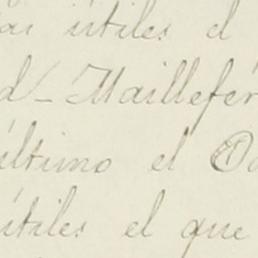 útiles el
d_ Maillefér
último el
útiles el que